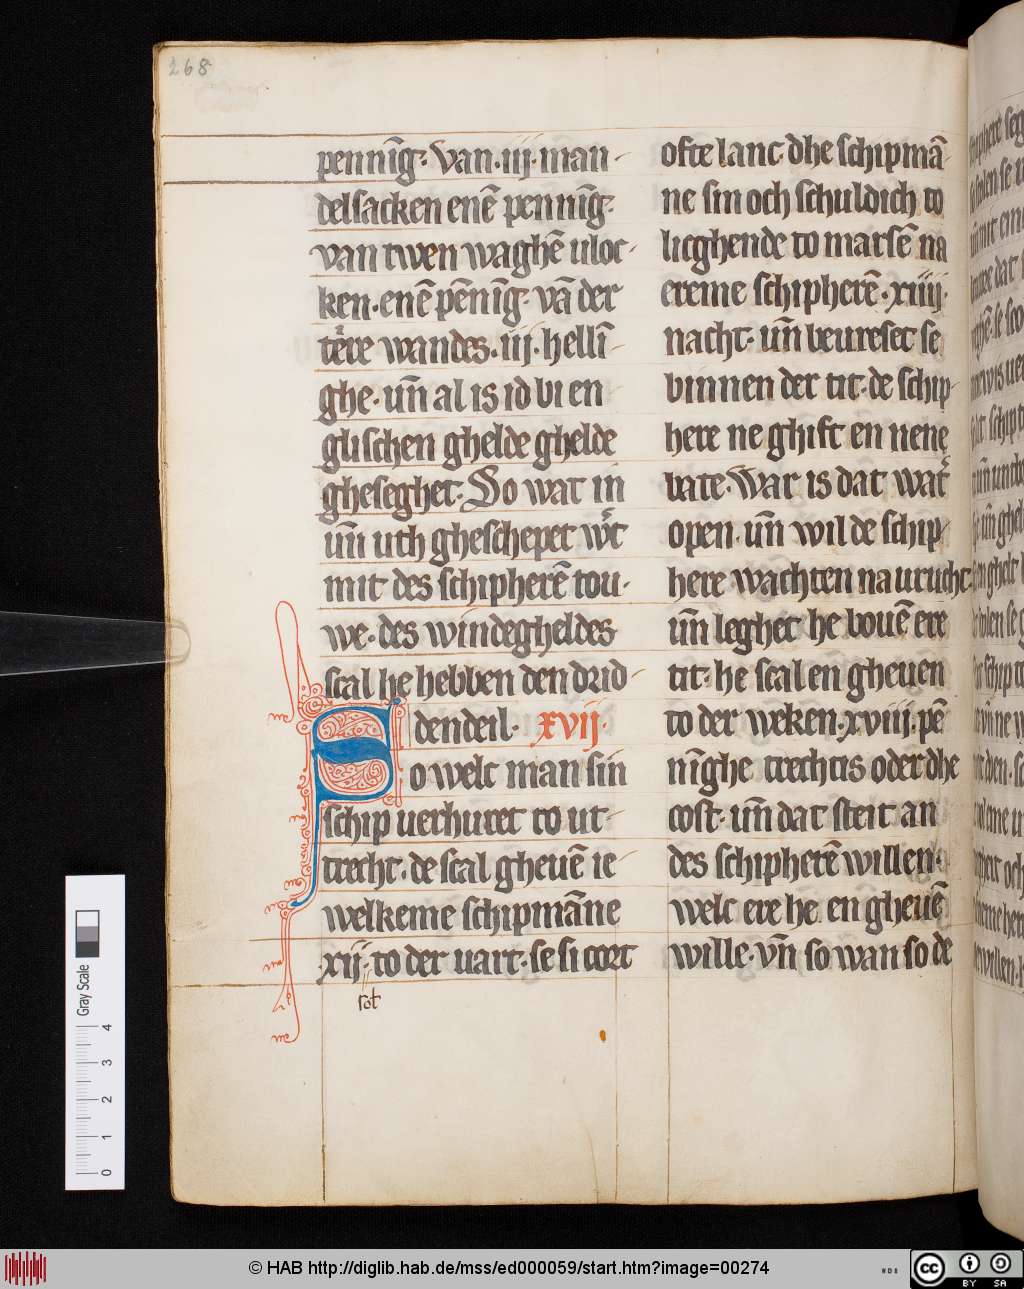 268
pennīg. Van. iij. man
delsacken enē pennīg.
van twen waghē vloc
ken. enē pēnīg. vā der
tēre wandes. iij. helli
ghe. uñ al is id bi en
glischen ghelde ghelde
gheseghet. So wat in
uñ uth gheschepet wͬt
mit des schipherē tou
we. des windegheldes
scal he hebben den drid
dendeil. xvij.
So welc man sin
schip verhuret to ut
trecht. de scal gheuē ie
welkeme schipmāne
xij. to der vart. se si cort
sol
ofte lanc. dhe schipmā
ne sin och schuldich to
licghende to marsē na
ereme schipherē. xiiij.
nacht. uñ beureset se
binnen der tit. de schip
here ne ghift en nene
bate. War is dat watͬ
open. uñ wil de schip
here wachten na vrucht
uñ leghet he bouē ere
tit. he scal en gheuen
to der weken. xviij. pē
nīghe trechtis oder dhe
cost. uñ dat steit an
des schipherē willen.
welc ere he en gheuē
wille. vñ so wan so de
Gray Scale
0 1 2 3 4
© HAB http://diglib.hab.de/mss/ed000059/start.htm?image=00274
WDB
CC BY SA